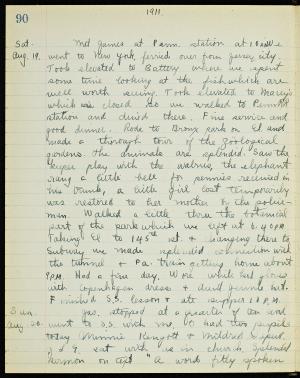 90
1911.
Sat. Met James at Penn. station at 10 and we
Aug. 19. went to New York, ferried over from Jersey city.
Took elevated to Battery where we spent
some time looking at the fish which are
well worth seeing. Took elevated to Macy's
which was closed so we walked to Penn RR
station and dined there. Fine service and
good dinner. Rode to Bronx park on El and
made a thorough tour of the zoological
gardens. The animals are splendid. Saw the
keeper play with the walrus, the elephant
rang a little bell for pennies received in
his trunk, a little girl lost temporarily
was restored to her mother by the police-
man. Walked a little thru the botanical
part of the park which we left at 6:40 P.M.
Taking El to 145th st. & changing there to
Subway we made splendid connection with
the tunnel & Pa. train getting home about
9 P.M. Had a fine day. Wore white kid gloves
with Copenhagen dress &
Finished S.S. lesson & ate supper 10 P.M.
Sun. Jas. stopped at a quarter of ten and
Aug. 20. went to S.S. with me. I had two pupils
today Minnie & Mildred
J & I sat with us in church. Splendid
sermon on text "A word fitly spoken